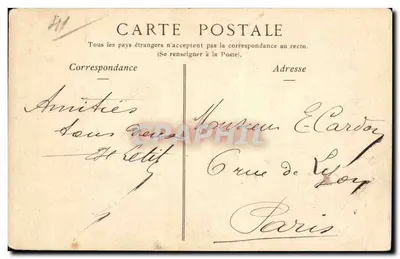 41
CARTE POSTALE
Tous les pays étrangers n'acceptent pas la correspondance au recto.
(Se renseigner à la Poste).
Correspondance
Adresse
Amitiés
tous deux
Petit
Monsieur E. Cardon
6 rue de Lyon
Paris